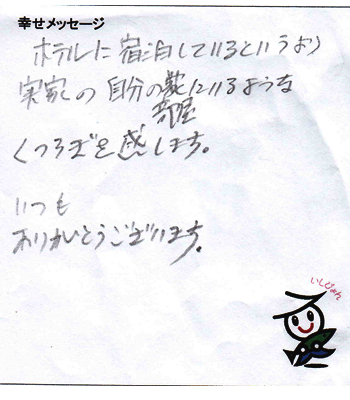 幸せメッセージ
ホテルに宿泊しているというより
実家の自分の部屋にいるような
くつろぎを感じます。
いつも
ありがとうございます。